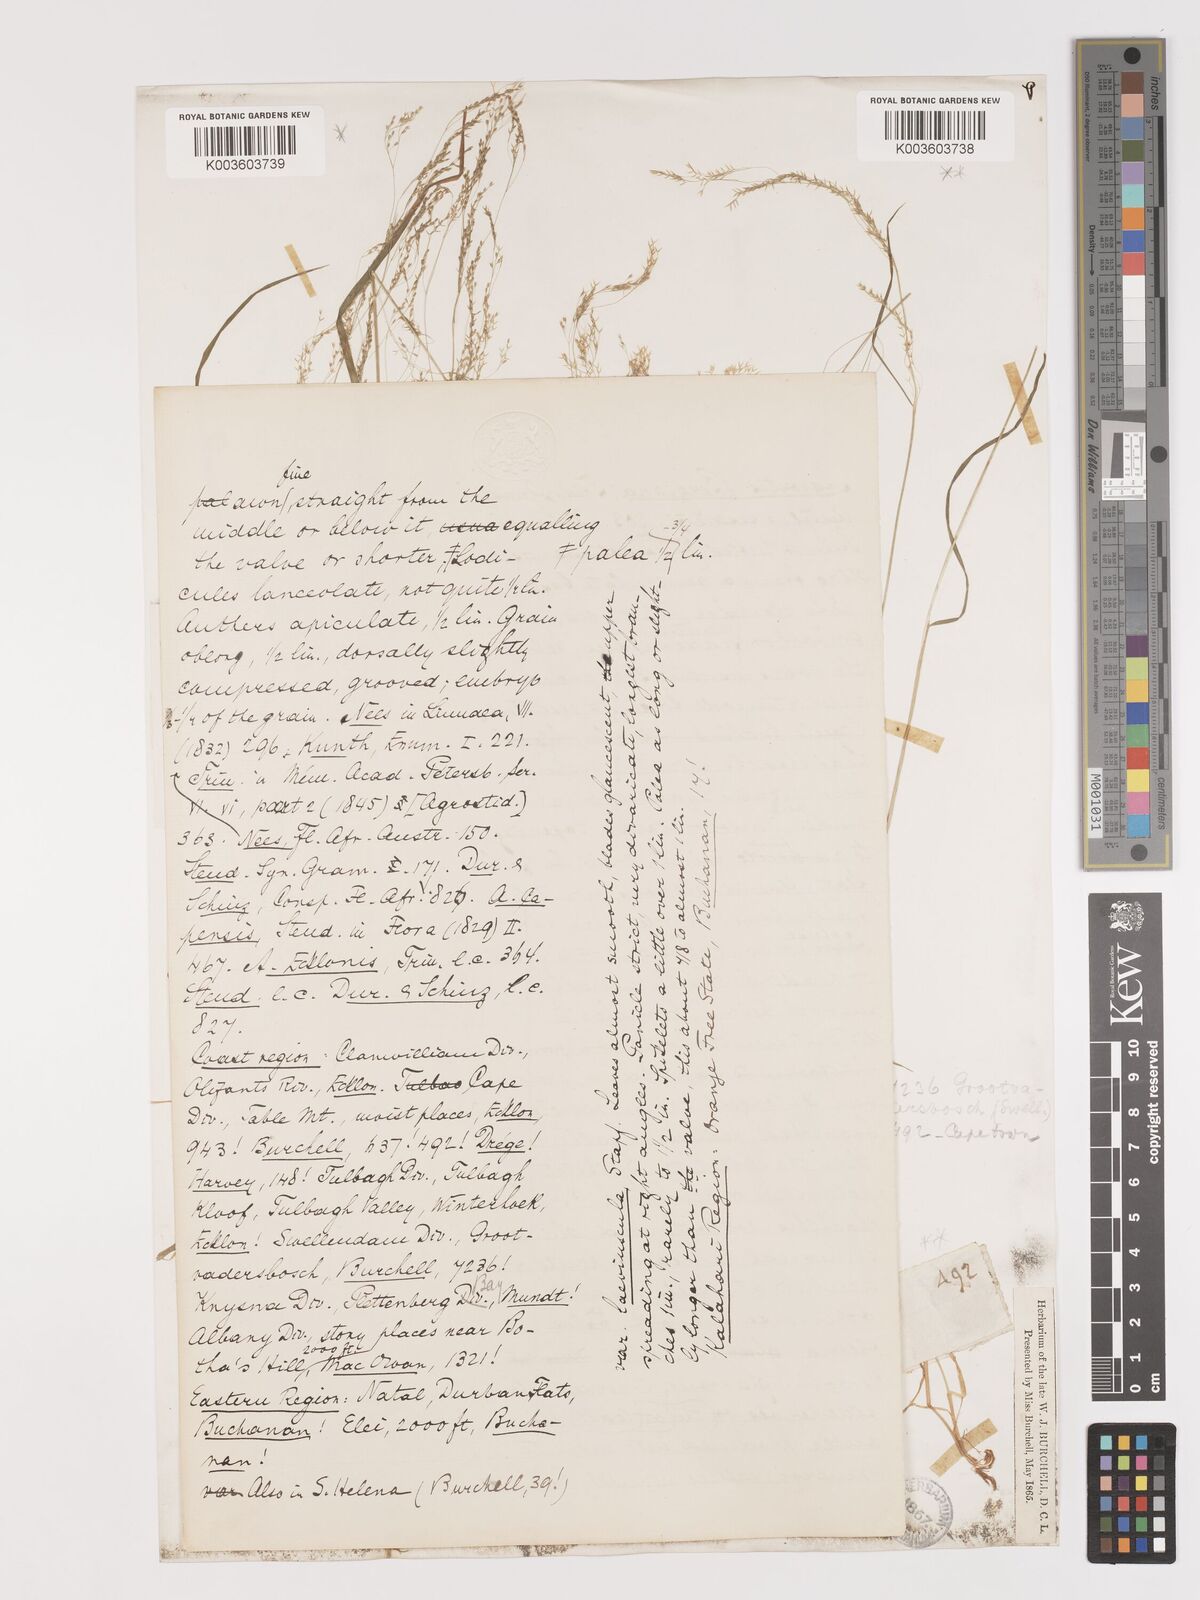 ROYAL BOTANIC GARDENS KEW
K003603739
ROYAL BOTANIC GARDENS KEW
K003603738
fine
pal awn, straight from the
middle or below it, usua equalling
the valve or shorter; ‡ Lodi-
cules lanceolate, not quite ½ lin.
Anthers apiculate, ½ lin. Grain
oblong, ½ lin., dorsally slightly
compressed, grooved; embryo
of the grain. Nees in Linnaea, VII.
(1832) 296; Kunth, Enum. I. 221.
Trin. in Mém. Acad. Pétersb. Ser.
VI. vi, part 2 (1845) [Agrostid.]
363. Nees, Fl. Afr. Austr. 150.
Steud. Syn. Gram. 171. Dur. &
Schinz, Consp. Fl. Afr. 826. A. Ca-
pensis, Steud. in Flora (1829) II.
467. A. Ecklonis, Trin. l.c. 364.
Steud. l.c. Dur. & Schinz, l.c.
827.
Coast region: Clanwilliam Div.,
Olifants Riv., Ecklon. Tulbag Cape
Div., Table Mt., moist places, Ecklon,
943! Burchell, 437! 492! Drège!
Harvey, 148! Tulbagh Div., Tulbagh
Kloof, Tulbagh Valley, Winterhoek,
Ecklon! Swellendam Div., Groot-
vadersbosch, Burchell, 7236!
Knysna Div., Plettenberg Div. Bay, Mundt!
Albany Div., stony places near Bo-
tha's Hill, 2000 ft. MacOwan, 1321!
Eastern Region: Natal, Durban Flats,
Buchanan! 2000 ft, Bucha-
nan!
var Also in S. Helena (Burchell, 39!)
‡ palea ½-¾ lin.
var. laeviuscula Stapf. Leaves almost smooth, blades glaucescent, the upper
spreading at right angles. Panicle strict, very divaricate, longest bran-
ches 1 in., rarely to 1½ in. Spikelets a little over 1 lin. Palea as long or slight-
ly longer than the valve, this about 7/8 to almost 1 lin.
Kalahari Region: Orange Free State, Buchanan, 17!
7236 Grootva-
dersbosch (Swell.)
492 - Cape town
492
Herbarium of the late W. J. BURCHELL, D. C. L.
Presented by Miss Burchell, May 1865.
1867
inches
Density
Don Williams
M001031
Royal Botanic Gardens
Kew
0 1 2 3 4 5 6 7 8 9 10
cm
copyright reserved